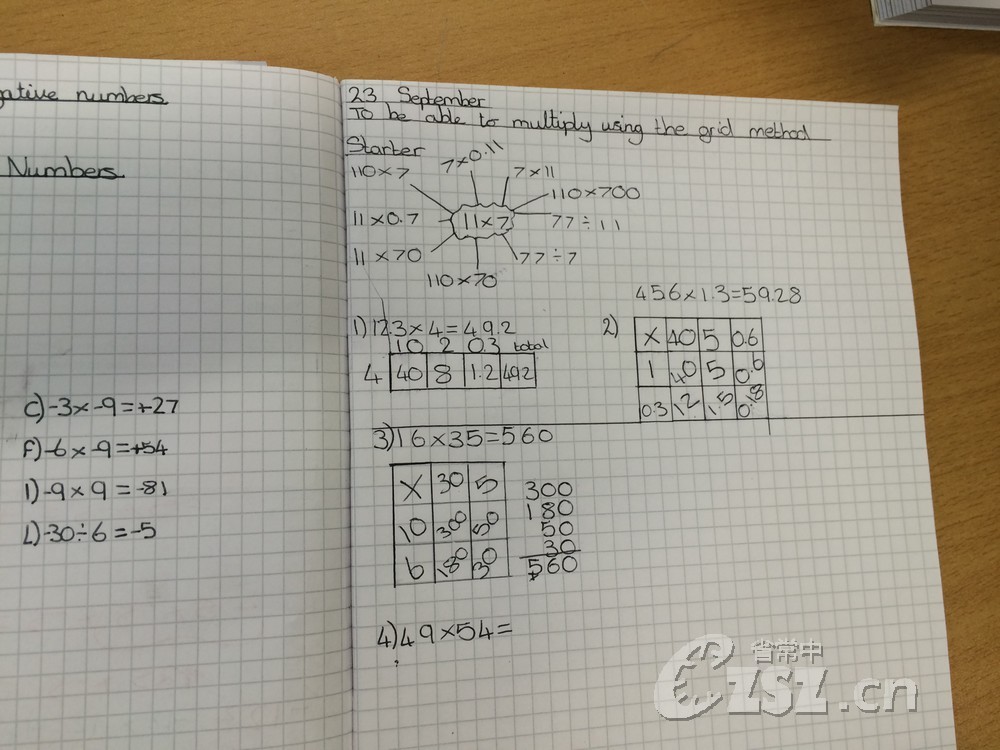 gative numbers
Numbers
C) -3 x -9 = +27
F) -6 x -9 = +54
I) -9 x 9 = -81
L) -30 ÷ 6 = -5
23 September
To be able to multiply using the grid method
Starter
110 x 7
7 x 0.11
7 x 11
110 x 700
11 x 0.7
11 x 7
77 ÷ 11
11 x 70
77 ÷ 7
110 x 70
1) 12.3 x 4 = 49.2
10 2 0.3 total
4 40 8 1.2 49.2
456 x 1.3 = 59.28
2)
X 40 5 0.6
1 40 5 0.6
0.3 12 1.5 0.18
3) 16 x 35 = 560
X 30 5
10 300 50
6 180 30
300
180
50
30
560
4) 49 x 54 =
省常中
CZSZ.cn